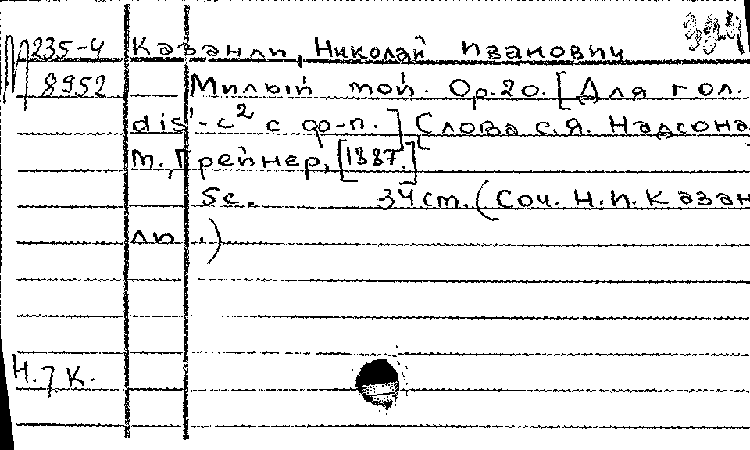 П235-4 Казанли, Николай Иванович
8952 Милый мой. Op. 20. [Для гол.
dis'-c² с ф-п.] [Слова С.Я. Надсона]
М., Грейнер, [1887.]
5 с. 34 cm. (Соч. Н. И. Казан
ли.)
Н. 7 К.